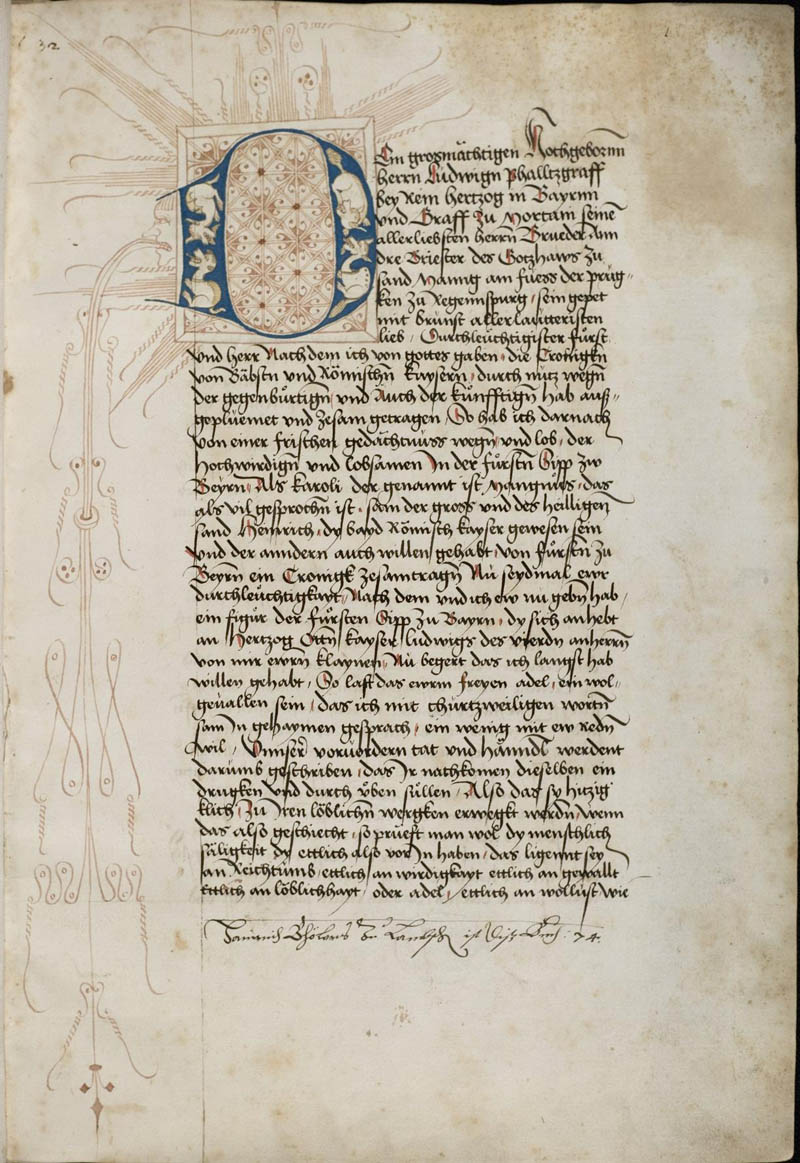 32
Dem grosmächtigen Hochgebornn
herrn Ludwign Phalltzgraff
bey Rein hertzog in Bayrnn
und Graff zu Mortain seinē
allerliebsten herrnn Brueder Ann
dre Briester des Gotzhaws zu
sand Manng am fuess der prug
ken zu Regennspurg / sein gepet
mit brunst allerlautteristen
lieb / Durchleuchtigister fürst
Und herr Nach dem ich von gottes gaben / die Cronigkn
von Bäbstn und Römischn kaysern / durch nutz wegn
der gegenbürtign und Auch der künfftign hab auß-
gepluemet und zesam getragen / So hab ich darnach
von einer frischen gedächtnuss wegn / und lob / der
Hochwirdign und lobsamen In der fürstn Sipp zw
Beyrn / Als karoli der genannt ist Mangnus / das
als vil gesprochn ist / sam der gross und des heilligen
sand Heinrich / dy bayd Römisch kayser gewesen sein
und der anndern auch willen gehabt / von fürstn zu
Beyrn ein Cronigk zesamtragn Nu seydmal ewr
durchleuchtigkayt / Nach dem und ich ew nu gebn hab /
ein figur der fürsten Sipp zu Bayrn / dy sich anhebt
an Hertzog Ottn kayser ludwigs des vierdn anherrn
von mir ewrn klaynen / Nu begert das ich langst hab
willen gehabt / So last das ewrm freyen adel / ein wol-
geuallen sein / das ich mit churtzweiligen wortn
sam In gehaymen gesprach / ein wenig mit ew redn
wil / Unnser vorvordern tat und hänndl werdent
darumb geschriben / das Ir nachkomen dieselben ein
drugken und durch üben süllen / Also das sy hitzig
klich / zu Iren löblichn wergken erwegkt werdn / wenn
das also geschiecht / so prueft man wol dy menschlich
säligkeit dy ettlich also vor In haben / das ligennt sey
an Reichtumb / ettlich an wirdigkayt ettlich an gewallt
Ettlich an löblichhayt / oder adel / ettlich an wollust wie
ist
74.